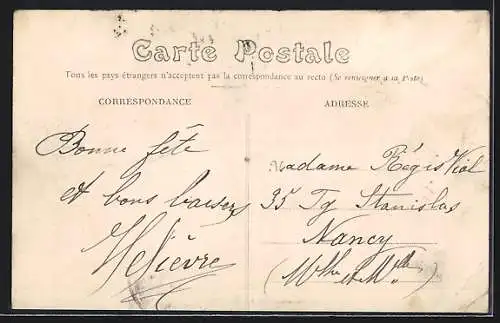 Carte Postale
Tous les pays étrangers n'acceptent pas la correspondance au recto (Se renseigner à la Poste)
CORRESPONDANCE
ADRESSE
Bonne fête
et bons baisers
Madame Régis Vial
35 Fg Stanislas
Nancy
(Mthe et Mlle)